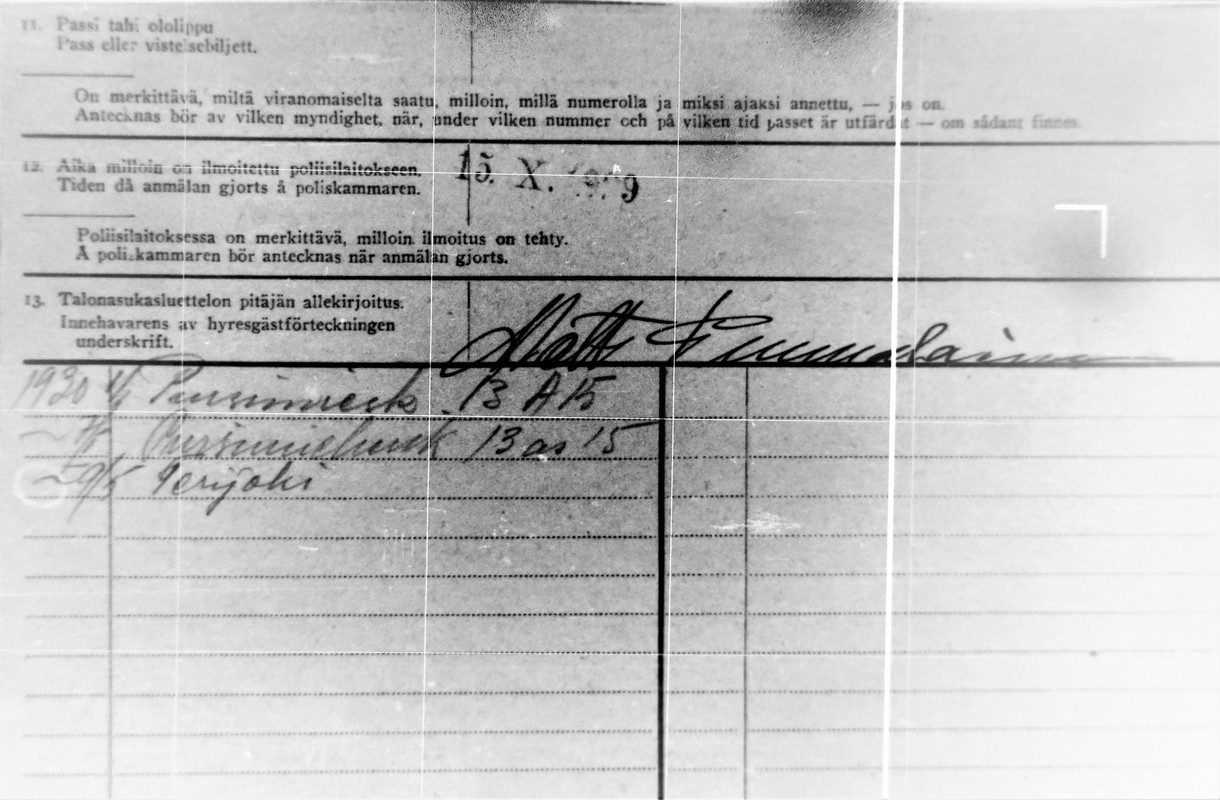 11. Passi tahi ololippu
Pass eller vistelsebiljett.
On merkittävä, miltä viranomaiselta saatu, milloin, millä numerolla ja miksi ajaksi annettu, — jos on.
Antecknas bör av vilken myndighet, när, under vilken nummer och på vilken tid passet är utfärdat — om sådant finnes.
12. Aika milloin on ilmoitettu poliisilaitokseen.
Tiden då anmälan gjorts å poliskammaren.
15. X. 1929
Poliisilaitoksessa on merkittävä, milloin ilmoitus on tehty.
Å poliskammaren bör antecknas när anmälan gjorts.
13. Talonasukasluettelon pitäjän allekirjoitus.
Innehavarens av hyresgästförteckningen
underskrift.
Matti
1930 Pursimiesk 13 A 15
Pursimiehenk 13 as 15
Terijoki